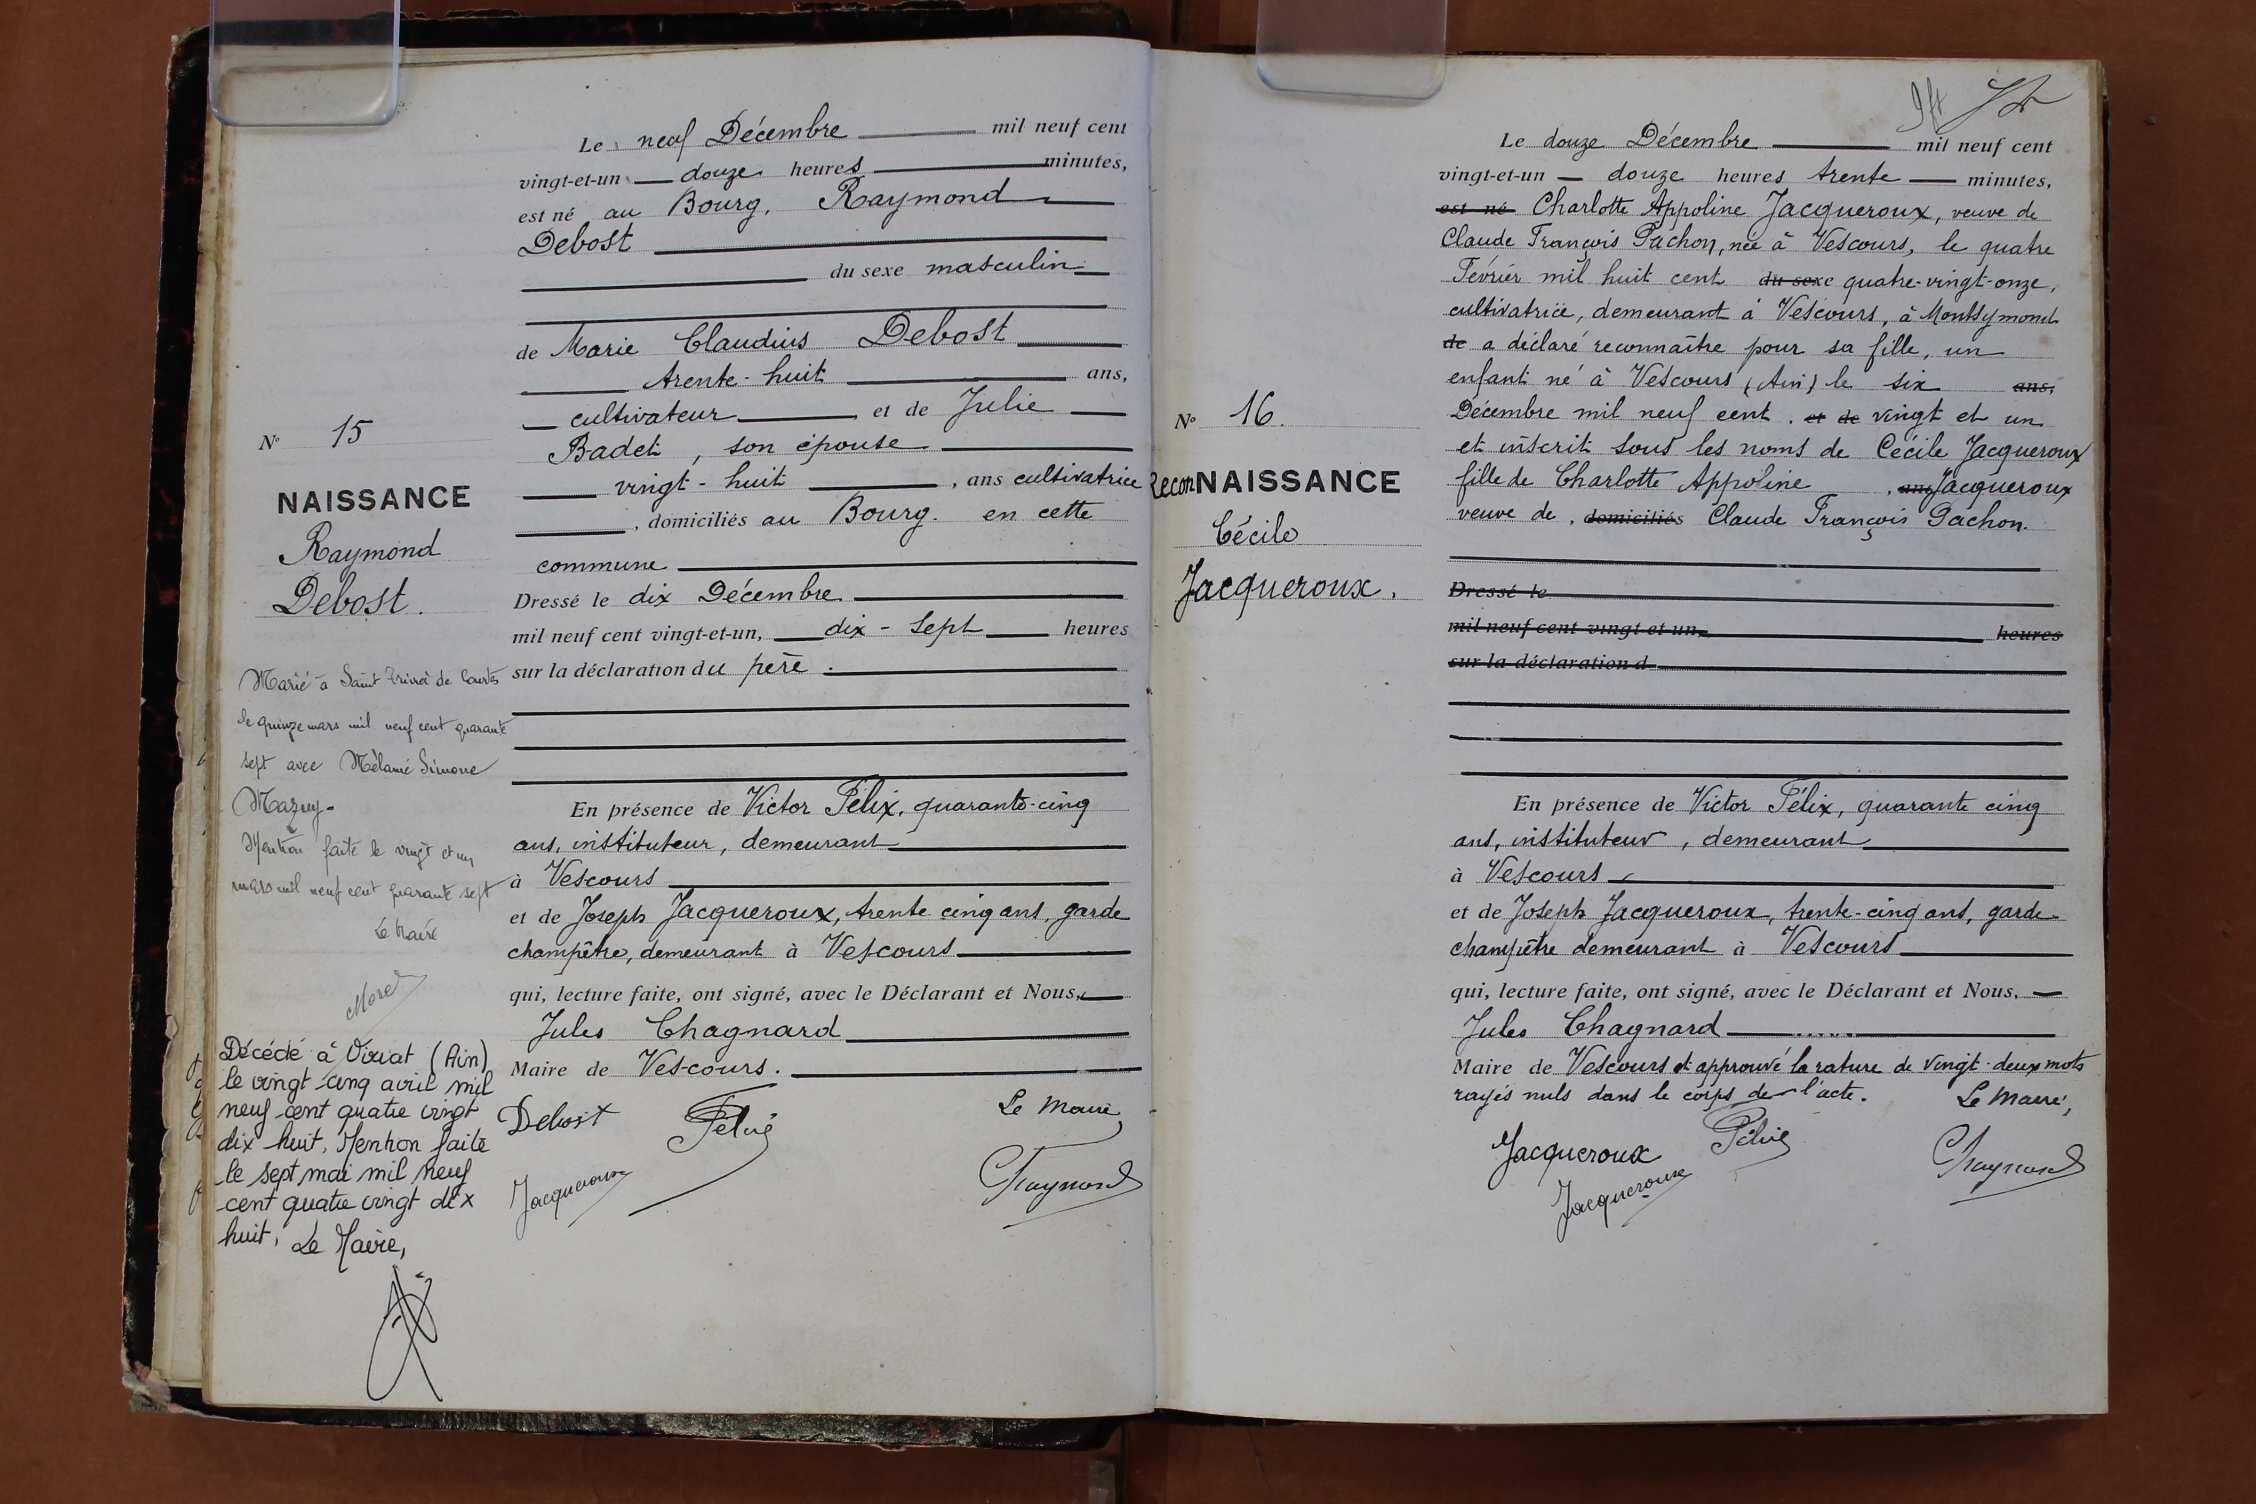 N° 15
NAISSANCE
Raymond
Debost.
Marié à Saint Trivier de Courtes
le quinze mars mil neuf cent quarante
sept avec Mélanie Simone
Mazuy.
Mention faite le vingt et un
mars mil neuf cent quarante sept
Le Maire
Morel
Décédé à Viriat (Ain)
le vingt cinq avril mil
neuf cent quatre vingt
dix huit. Mention faite
le sept mai mil neuf
cent quatre vingt dix
huit. Le Maire,
Le neuf Décembre mil neuf cent
vingt-et-un douze heures minutes,
est né au Bourg, Raymond
Debost
du sexe masculin
de Marie Claudius Debost
trente-huit ans,
cultivateur et de Julie
Badet, son épouse
vingt-huit, ans cultivatrice
, domiciliés au Bourg. en cette
commune
Dressé le dix Décembre
mil neuf cent vingt-et-un, dix-sept heures
sur la déclaration du père.
En présence de Victor Félix, quarante-cinq
ans, instituteur, demeurant
à Vescours
et de Joseph Jacqueroux, trente cinq ans, garde
champêtre, demeurant à Vescours
qui, lecture faite, ont signé, avec le Déclarant et Nous,
Jules Chagnard
Maire de Vescours.
Debost Félix Le Maire,
Jacqueroux Chagnard
N° 16.
ReconNAISSANCE
Cécile
Jacqueroux.
Le douze Décembre mil neuf cent
vingt-et-un douze heures trente minutes,
est né Charlotte Appoline Jacqueroux, veuve de
Claude François Pachon, née à Vescours, le quatre
Février mil huit cent du sexe quatre-vingt-onze,
cultivatrice, demeurant à Vescours, à Montsymond
de a déclaré reconnaître pour sa fille, un
enfant né à Vescours (Ain) le six ans,
Décembre mil neuf cent. et de vingt et un
et inscrit sous les noms de Cécile Jacqueroux
fille de Charlotte Appoline, ans Jacqueroux
veuve de, domiciliés Claude François Pachon.
Dressé le
mil neuf cent vingt-et-un, heures
sur la déclaration d
En présence de Victor Félix, quarante cinq
ans, instituteur, demeurant
à Vescours
et de Joseph Jacqueroux, trente-cinq ans, garde
champêtre demeurant à Vescours
qui, lecture faite, ont signé, avec le Déclarant et Nous,
Jules Chagnard
Maire de Vescours et approuvé la rature de vingt-deux mots
rayés nuls dans le corps de l'acte. Le Maire,
Jacqueroux Félix
Jacqueroux Chagnard